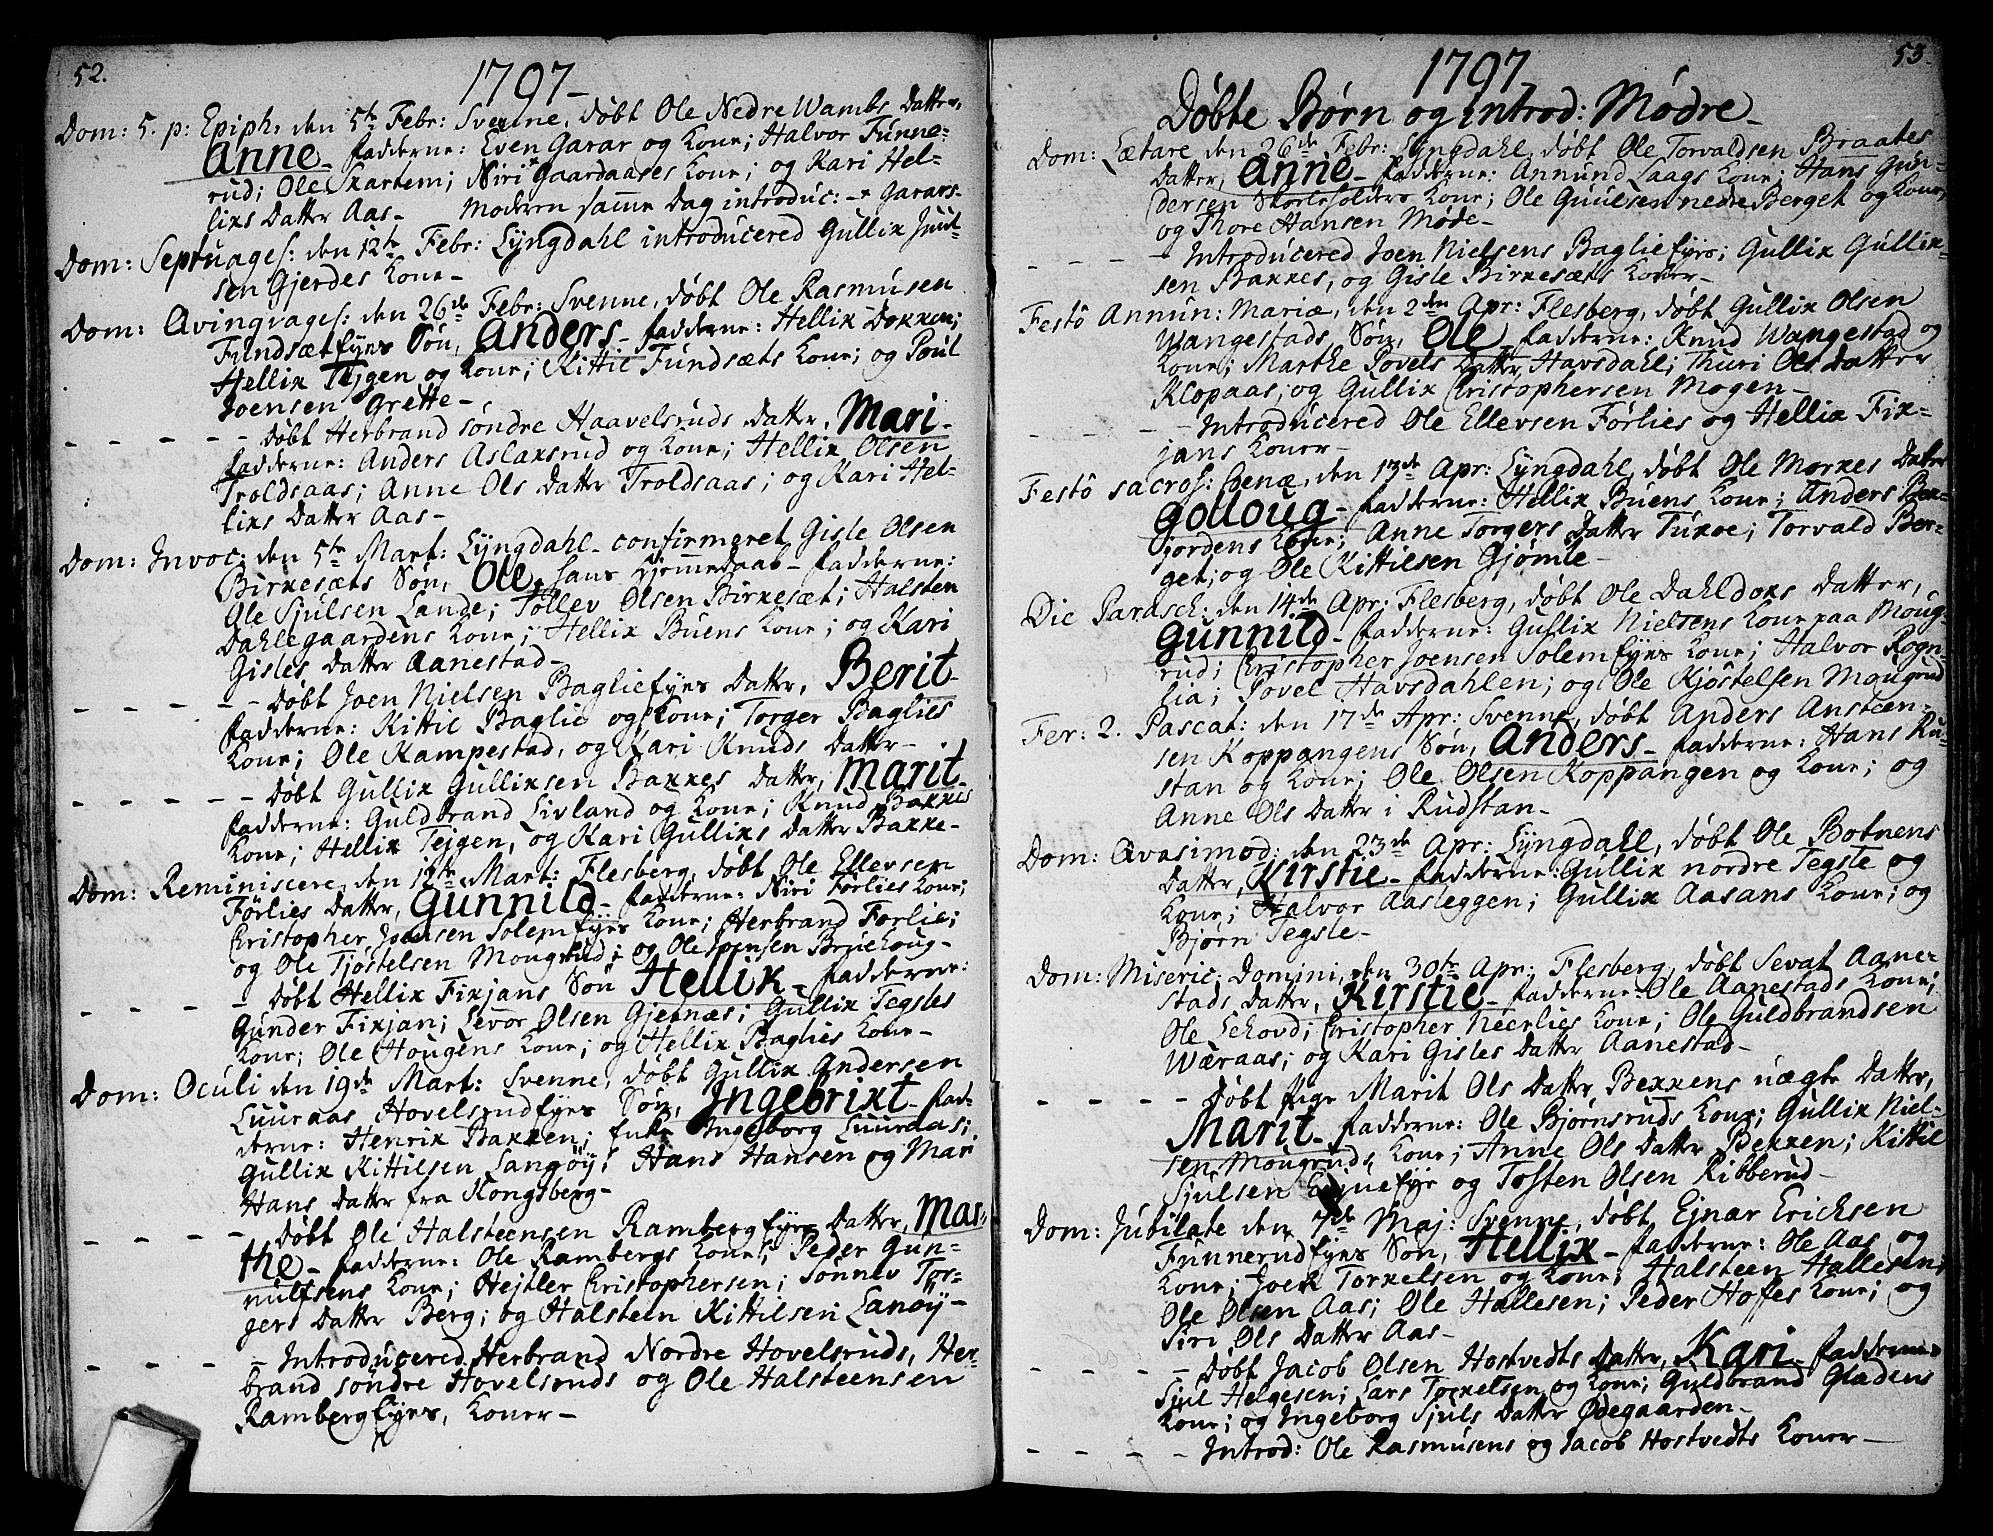 52.
1797
Dom: 5. p: Epiph: den 5te Febr: Svenne, døbt Ole Nedre Wambs Datter,
Anne - fadderne: Even Garar og Kone; Halvor Funne-
rud; Ole Skartem; Niri * Gaardaases Kone; og Kari Hel-
lixs Datter Aas - Moderen samme Dag introduc: - * Garars-
Dom: Septuages: den 12te Febr: Lyngdahl introducered Gullix Juul-
sen Gjerdes Kone -
Dom: Qvinqvages: den 26de Febr: Svenne, døbt Ole Rasmusen
Fundsæt Ejes Søn, Anders - fadderne: Hellix Dokken;
Hellix Tejgen og Kone; Kittil Fundsæts Kone; og Poul
Joensen Grette -
- - - - - døbt Herbrand søndre Haavelsruds Datter, Mari -
fadderne: Anders Aslaksrud og Kone; Hellix Olsen
Troldsaas; Anne Ols Datter Troldsaas; og Kari Hel-
lixs Datter Aas -
Dom: Invoc: den 5te Mart: Lyngdahl - confirmeret Gisle Olsen
Birkesæts Søn, Ole, hans Hjemmedaab - fadderne:
Ole Sjulsen Lande; Tollev Olsen Birkesæt; Halsten
Dahlegaardens Kone; Hellix Buens Kone; og Kari
Gisles Datter Aanestad -
- - - - - døbt Joen Nielsen Baglie Ejes Datter, Berit -
fadderne: Kittil Baglie og Kone; Torger Baglies
Kone; Ole Kampestad, og Kari Knuds Datter -
- - - - - døbt Gullix Gullixsen Bakkes Datter, Marit -
fadderne: Guldbrand Livland og Kone; Knud Bakkes
Kone; Hellix Tejgen, og Kari Gullixs Datter Bakke -
Dom: Reminiscere, den 12te Mart: Flesberg, døbt Ole Ellevsen
Førlies Datter, Gunnild - fadderne: Niri Førlies Kone;
Christopher Joensen Solem Ejes Kone; Herbrand Førlie;
og Ole Tjøstelsen Mougrud; og Ole Joensen Bruehoug -
- - - - døbt Hellix Fixjans Søn Hellix - fadderne:
Gunder Fixjan; Levor Olsen Gjetnæs; Gullix Tegsles
Kone; Ole Hougens Kone; og Hellix Baglies Kone -
Dom: Oculi den 19de Mart: Svenne, døbt Gullix Andersen
Luuraas Hovelsrud Ejes Søn, Ingebrixt - fad-
derne: Henrix Bakken; Enke Ingeborg Luuraas;
Gullix Kittilsen Langøy; Hans Hansen og Mari
Hans Datter fra Kongsberg -
- - - - - døbt Ole Halsteensen Ramberg Ejes Datter, Mar-
the - fadderne: Ole Rambergs Kone; Peder Gun-
nulfsens Kone; Hejtler Christophersen; Sønnev Tor-
gers Datter Berg; og Halsteen Kittilsen Lanøy -
- - - - - Introducered Herbrand Nordre Hovelsruds, Her-
brand søndre Hovelsruds og Ole Halsteensen
Ramberg Ejes, Koner -
53.
1797
Døbte Børn og introd: Mødre -
Dom: Lætare den 26de Febr: Lyngdahl, døbt Ole Torvaldsen Braates
Datter, Anne - fadderne: Annund Laags Kone; Hans Gun-
dersen Skorte Solders Kone; Ole Guulsen nedre Berget og Kone;
og Thore Hansen Møde -
- - - - Introducered Joen Nielsens Baglie Ejes; Gullix Gullix-
sen Bakkes, og Gisle Birkesæts Koner -
Festô Annun: Mariæ, den 2den Apr: Flesberg, døbt Gullix Olsen
Wangestads Søn, Ole - fadderne: Knud Wangestad og
Kone; Marthe Povels Datter Havsdahl; Thuri Ols Datter
Klopaas, og Gullix Christophersen Mogen -
- - - - Introducered Ole Ellevsen Førlies og Hellix Fix-
jans Koner -
Festô sacros: Cœnæ, den 13de Apr: Lyngdahl, døbt Ole Morkes Datter
Golloug - fadderne: Hellix Buens Kone; Anders Bek-
jordens Kone; Anne Torgers Datter Tukoe; Torvald Ber-
get; og Ole Kittilsen Gjømle -
Die Parasch: den 14de Apr: Flesberg, døbt Ole Dahldoks Datter,
Gunnild - fadderne: Gullix Nielsens Kone paa Moug-
rud; Christopher Joensen Solem Ejes Kone; Halvor Rogn-
lia; Povel Havsdahlen; og Ole Kjøstelsen Mougrud
Fer: 2. Pascat: den 17de Apr: Svenne, døbt Anders Ansteen-
sen Koppangens Søn, Anders - fadderne: Hans Ru-
stan og Kone; Ole Olsen Koppangen og Kone; og
Anne Ols Datter i Rudstan -
Dom: Qvasimod: den 23de Apr: Lyngdahl, døbt Ole Botnens
Datter, Kirstie - fadderne: Gullix nordre Tegsle og
Kone; Halvor Aasleggen; Gullix Aasans Kone; og
Bjørn Tegsle -
Dom: Miseric: Domini, den 30te Apr: Flesberg, døbt Sevat Aane-
stads Datter, Kirstie - fadderne: Ole Aanestads Kone;
Ole Lehovd; Christopher Neerlies Kone; Ole Guldbrandsen
Wæraas; og Kari Gisles Datter Aanestad -
- - - - døbt Pige Marit Ols Datter Bekkens uægte Datter,
Marit - fadderne: Ole Bjørnsruds Kone; Gullix Niel-
sen Mougruds Kone; Anne Ols Datter Bekken; Kittil
Sjulsen Ejgne Eje og Tosten Olsen Ribberud -
Dom: Jubilate den 7de Maj: Svenne, døbt Ejnar Erichsen
Funnerud Ejes Søn, Hellix - fadderne: Ole Aas og
Kone; Joen Torkelsen og Kone; Halsteen Hallesen;
Ole Olsen Aas; Ole Hallesen; Peder Hoffes Kone; og
Siri Ols Datter Aas -
- - - - døbt Jacob Olsen Hostvedts Datter, Kari - fadderne
Sjul Helgesen; Lars Torkelsen og Kone; Guldbrand Gladens
Kone; og Ingeborg Sjuls Datter Ødegaarden -
- - - - Introd: Ole Rasmusens og Jacob Hostvedts Koner -